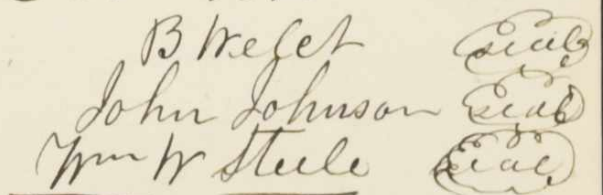 B Welch Seal
John Johnson Seal
Wm W Steele Seal